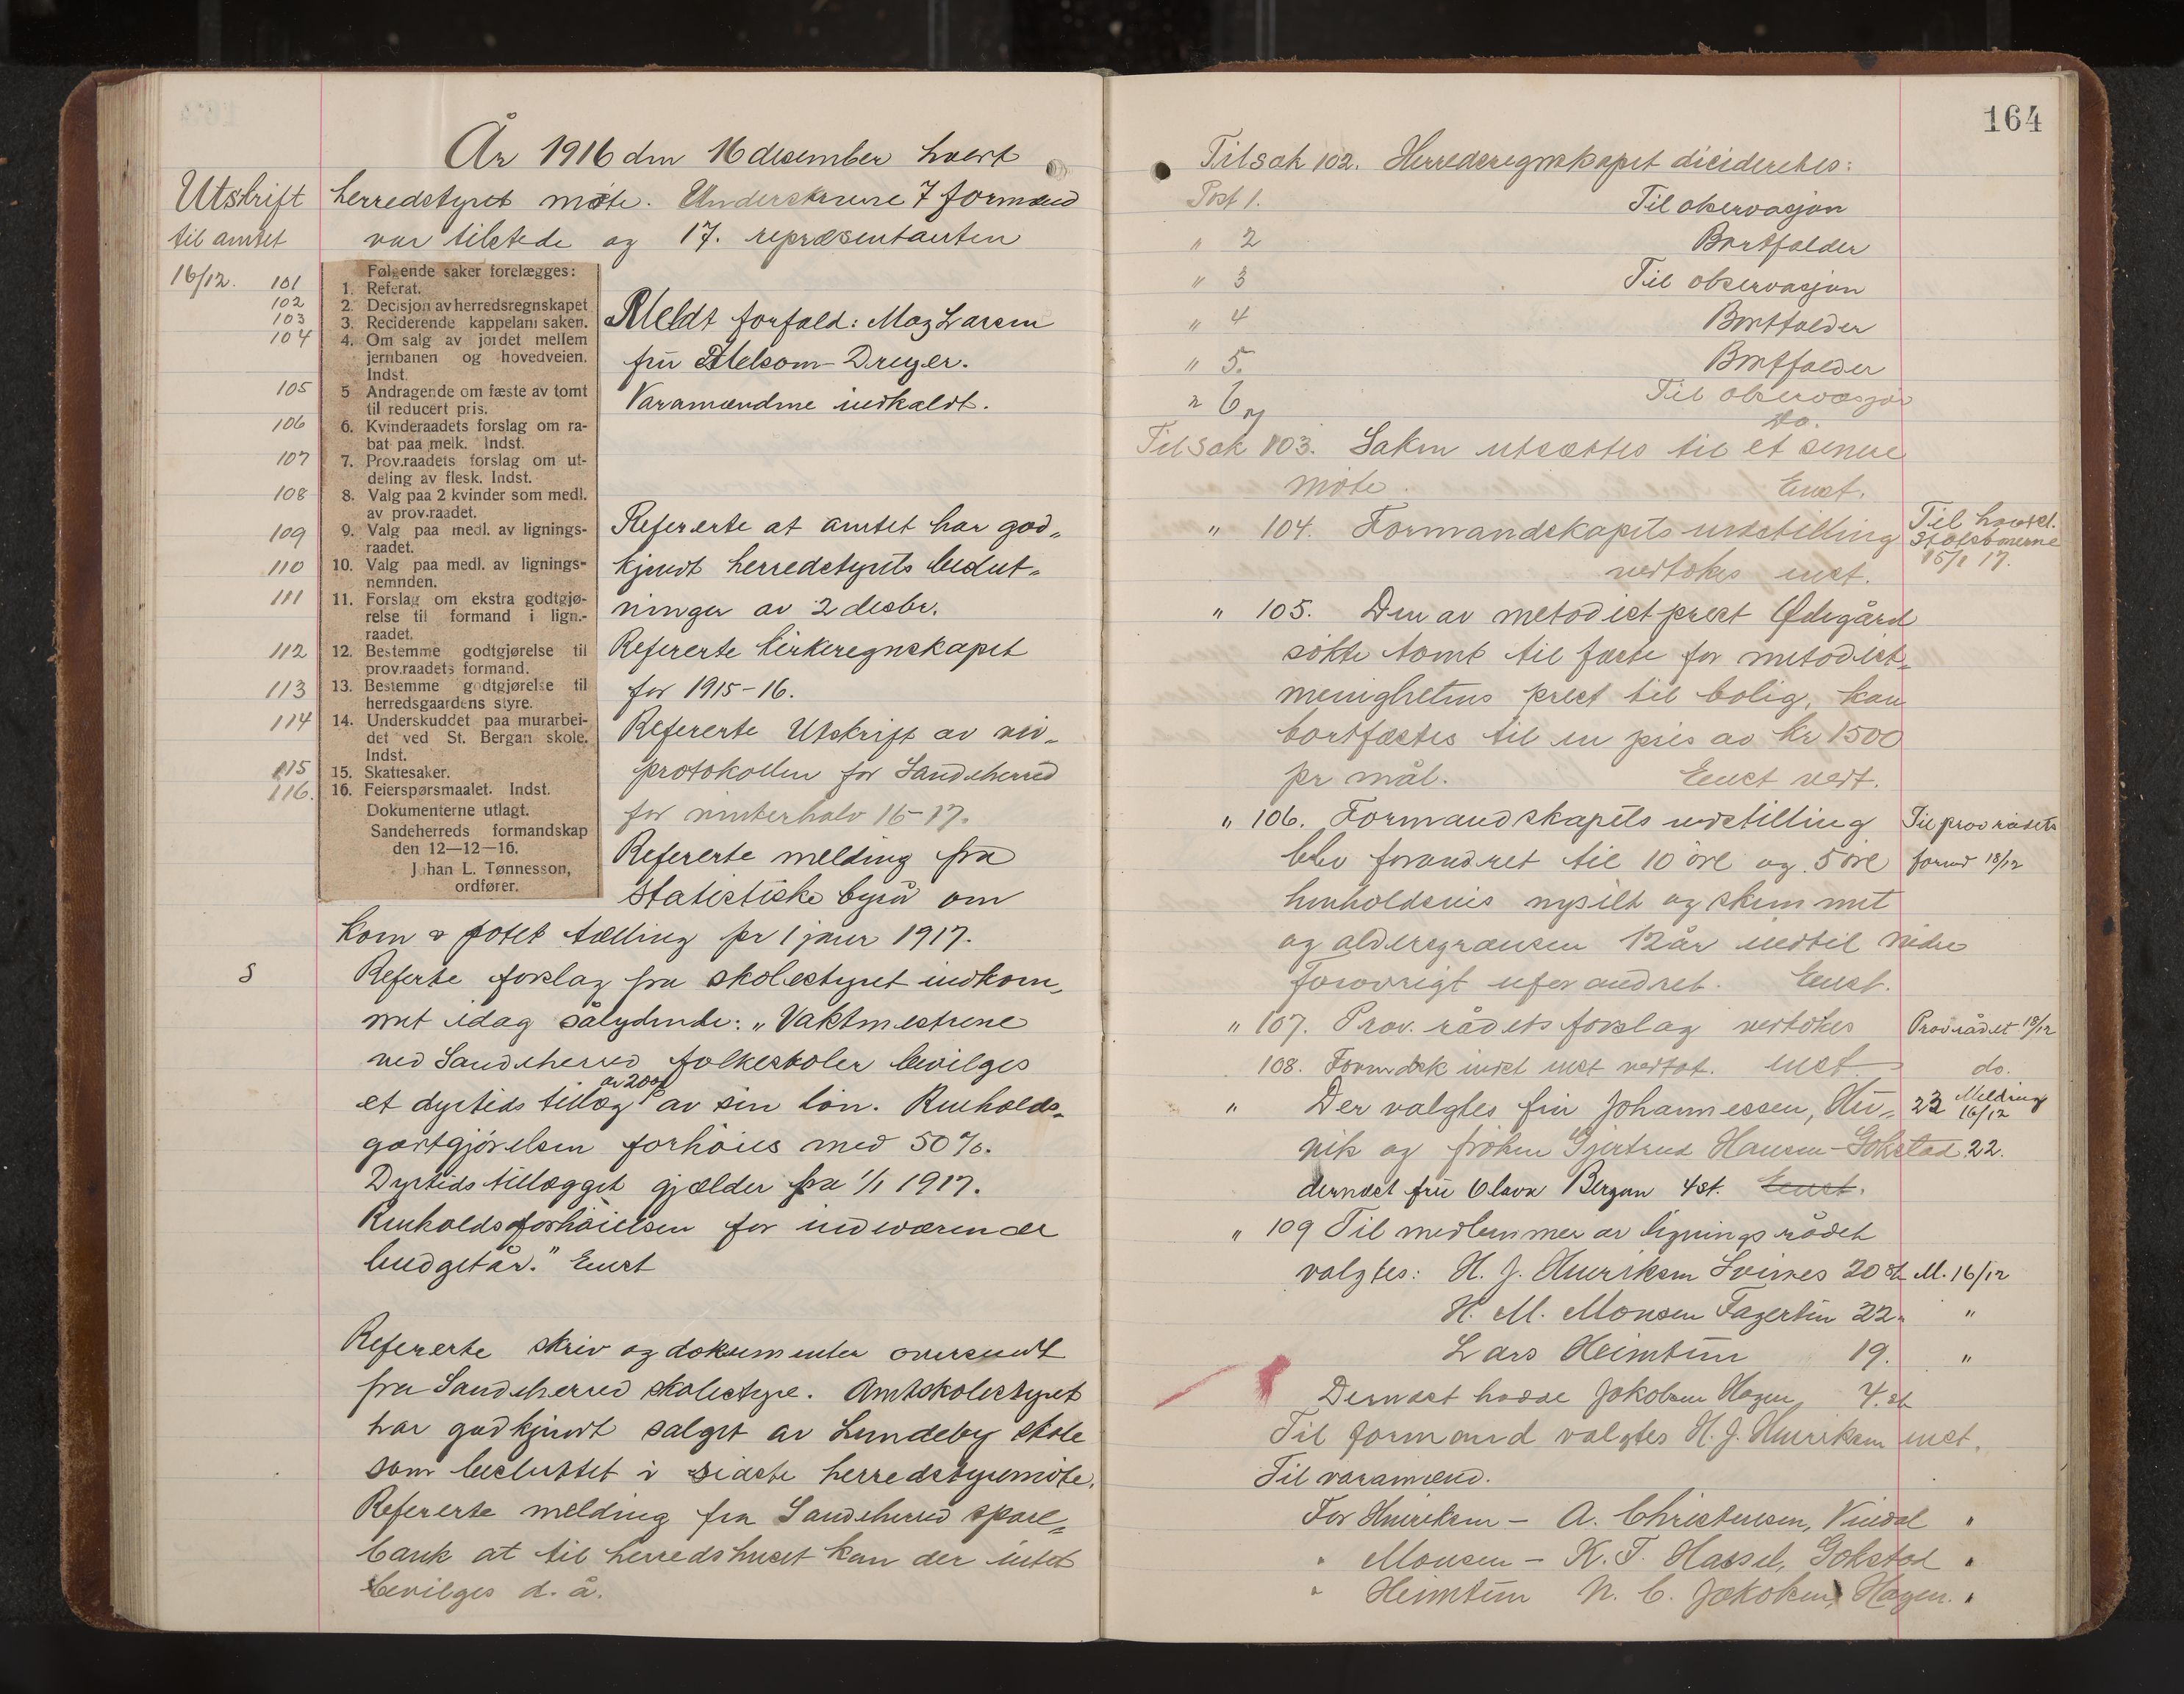 År 1916 den 16 desember holdt
Utskrift herredstyret møte. Underskrevne 7 formænd
til amtet var tilstede og 17. repræsentanter
16/12.
Følgende saker forelægges:
101 1. Referat.
102 2. Decisjon av herredsregnskapet
103 3. Reciderende kappelani saken.
104 4. Om salg av jordet mellem
jernbanen og hovedveien.
Indst.
105 5 Andragende om fæste av tomt
til reducert pris.
106 6. Kvinderaadets forslag om ra-
bat paa melk. Indst.
107 7. Prov.raadets forslag om ut-
deling av flesk. Indst.
108 8. Valg paa 2 kvinder som medl.
av prov.raadet.
109 9. Valg paa medl. av lignings-
raadet.
110 10. Valg paa medl. av lignings-
nemnden.
111 11. Forslag om ekstra godtgjø-
relse til formand i lign.-
raadet.
112 12. Bestemme godtgjørelse til
prov.raadets formand.
113 13. Bestemme godtgjørelse til
herredsgaardens styre.
114 14. Underskuddet paa murarbei-
det ved St. Bergan skole.
Indst.
115 15. Skattesaker.
116. 16. Feierspørsmaalet. Indst.
Dokumenterne utlagt.
Sandeherreds formandskap
den 12—12—16.
Johan L. Tønnesson,
ordfører.
Meldt forfald: Maz Larsen
fru Melsom-Dreyer.
Varamændene indkaldt.
Refererte at amtet har god„
kjendt herredstyrets beslut„
ninger av 2 desbr.
Refererte kirkeregnskapet
for 1915-16.
Refererte Utskrift av
protokollen for Sandeherred
for vinterhalv 16-17.
Refererte melding fra
statistiske byrå om
Korn & potet tælling pr 1 januar 1917.
S Referte forslag fra skolestyret indkom„
met idag sålydende: „Vaktmestrene
ved Sandeherred folkeskoler bevilges
et dyrtids tillæg av 20% av sin løn. Renholds-
godtgjörelsen forhöies med 50%.
Dyrtidstillægget gjælder fra 1/1 1917.
Renholdsforhöielsen for indeværende
budgetår." Enst
Refererte skriv og dokumenter oversendt
fra Sandeherred skolestyre. Amtskolestyret
har godkjendt salget av Lundeby skole
som besluttet i sidste herredstyremöte.
Refererte melding fra Sandeherred spare„
bank at til herredshuset kan der intet
bevilges d. å.
164
Til sak 102. Herredsregnskapet dicideretes:
Post 1. Til observasjon
" 2 Bortfalder
" 3 Til observasjon
" 4 Bortfalder
" 5. Bortfalder
" 6 Til observasjon
do.
Til sak 103. Saken utsættes til et senere
möte. Enst.
" 104. Formandskapets indstilling
vedtokes enst.
Til
15/1 17.
" 105. Den av metodistprest Ødegård
sökte tomt til fæste for metodist-
menighetens prest til bolig, kan
bortfæstes til en pris av kr 1500
pr mål. Enst vedt.
" 106. Formandskapets indstilling Til provrådets
blev forandret til 10 öre og 5 öre formd 18/12
henholdsvis nysilt og skummet
og aldersgrænsen 12 år indtil videre
Forövrigt uforandret. Enst.
" 107. Prov. rådets forslag vedtokes Provrådet 18/12
108. Formdsk indst enst vedtat. enst do.
" Der valgtes fru Johannessen, Hu„ 22 Melding 16/12
vik og fröken Gjertrud Hansen-Gokstad 22.
dernæst fru Olava Bergan 4 st. Enst.
" 109 Til medlemmer av ligningsrådet
valgtes: H. J. Henriksen Svines 20 st M. 16/12
H. M. Monsen Fagerlin 22„ "
Lars Heimtun 19. "
Dernæst hadde Jakobsen Hagen 4. st
Til formand valgtes H. J. Henriksen enst.
Til varamænd.
For Henriksen - A. Christensen, Vindal "
" Monsen - K. T. Hassel, Gokstad "
" Heimtun N. C. Jakobsen, Hagen. "